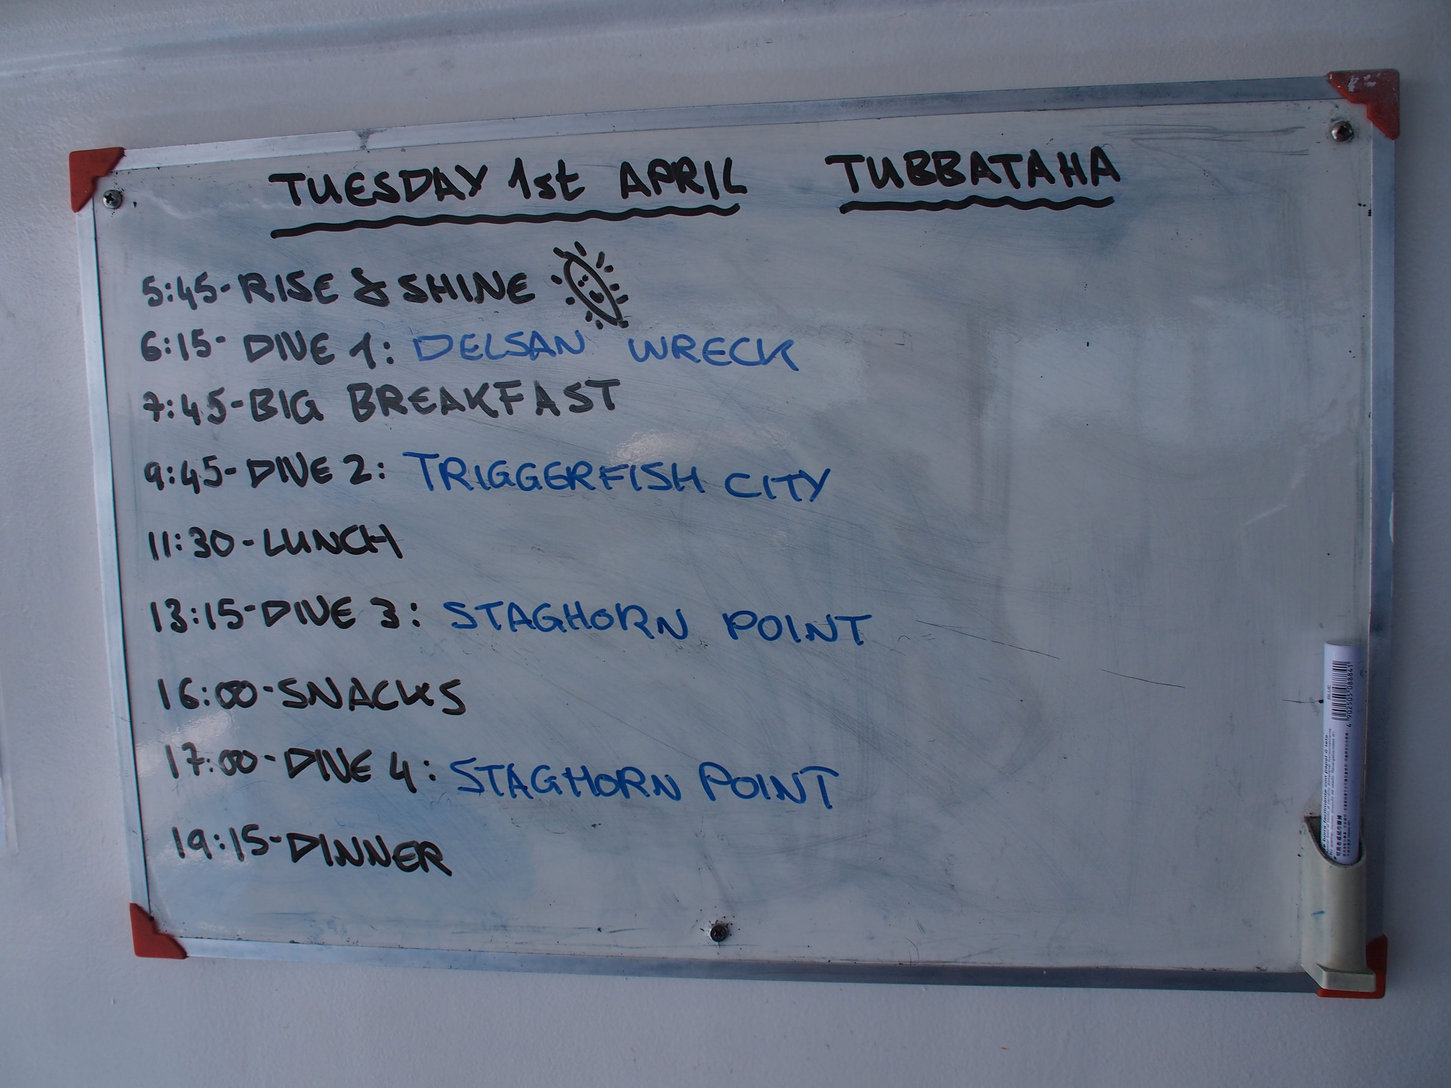 TUESDAY 1st APRIL TUBBATAHA
5:45-RISE & SHINE
6:15- DIVE 1: DELSAN WRECK
7:45-BIG BREAKFAST
9:45-DIVE 2: TRIGGERFISH CITY
11:30-LUNCH
13:15-DIVE 3: STAGHORN POINT
16:00-SNACKS
17:00-DIVE 4: STAGHORN POINT
19:15-DINNER
BLUE